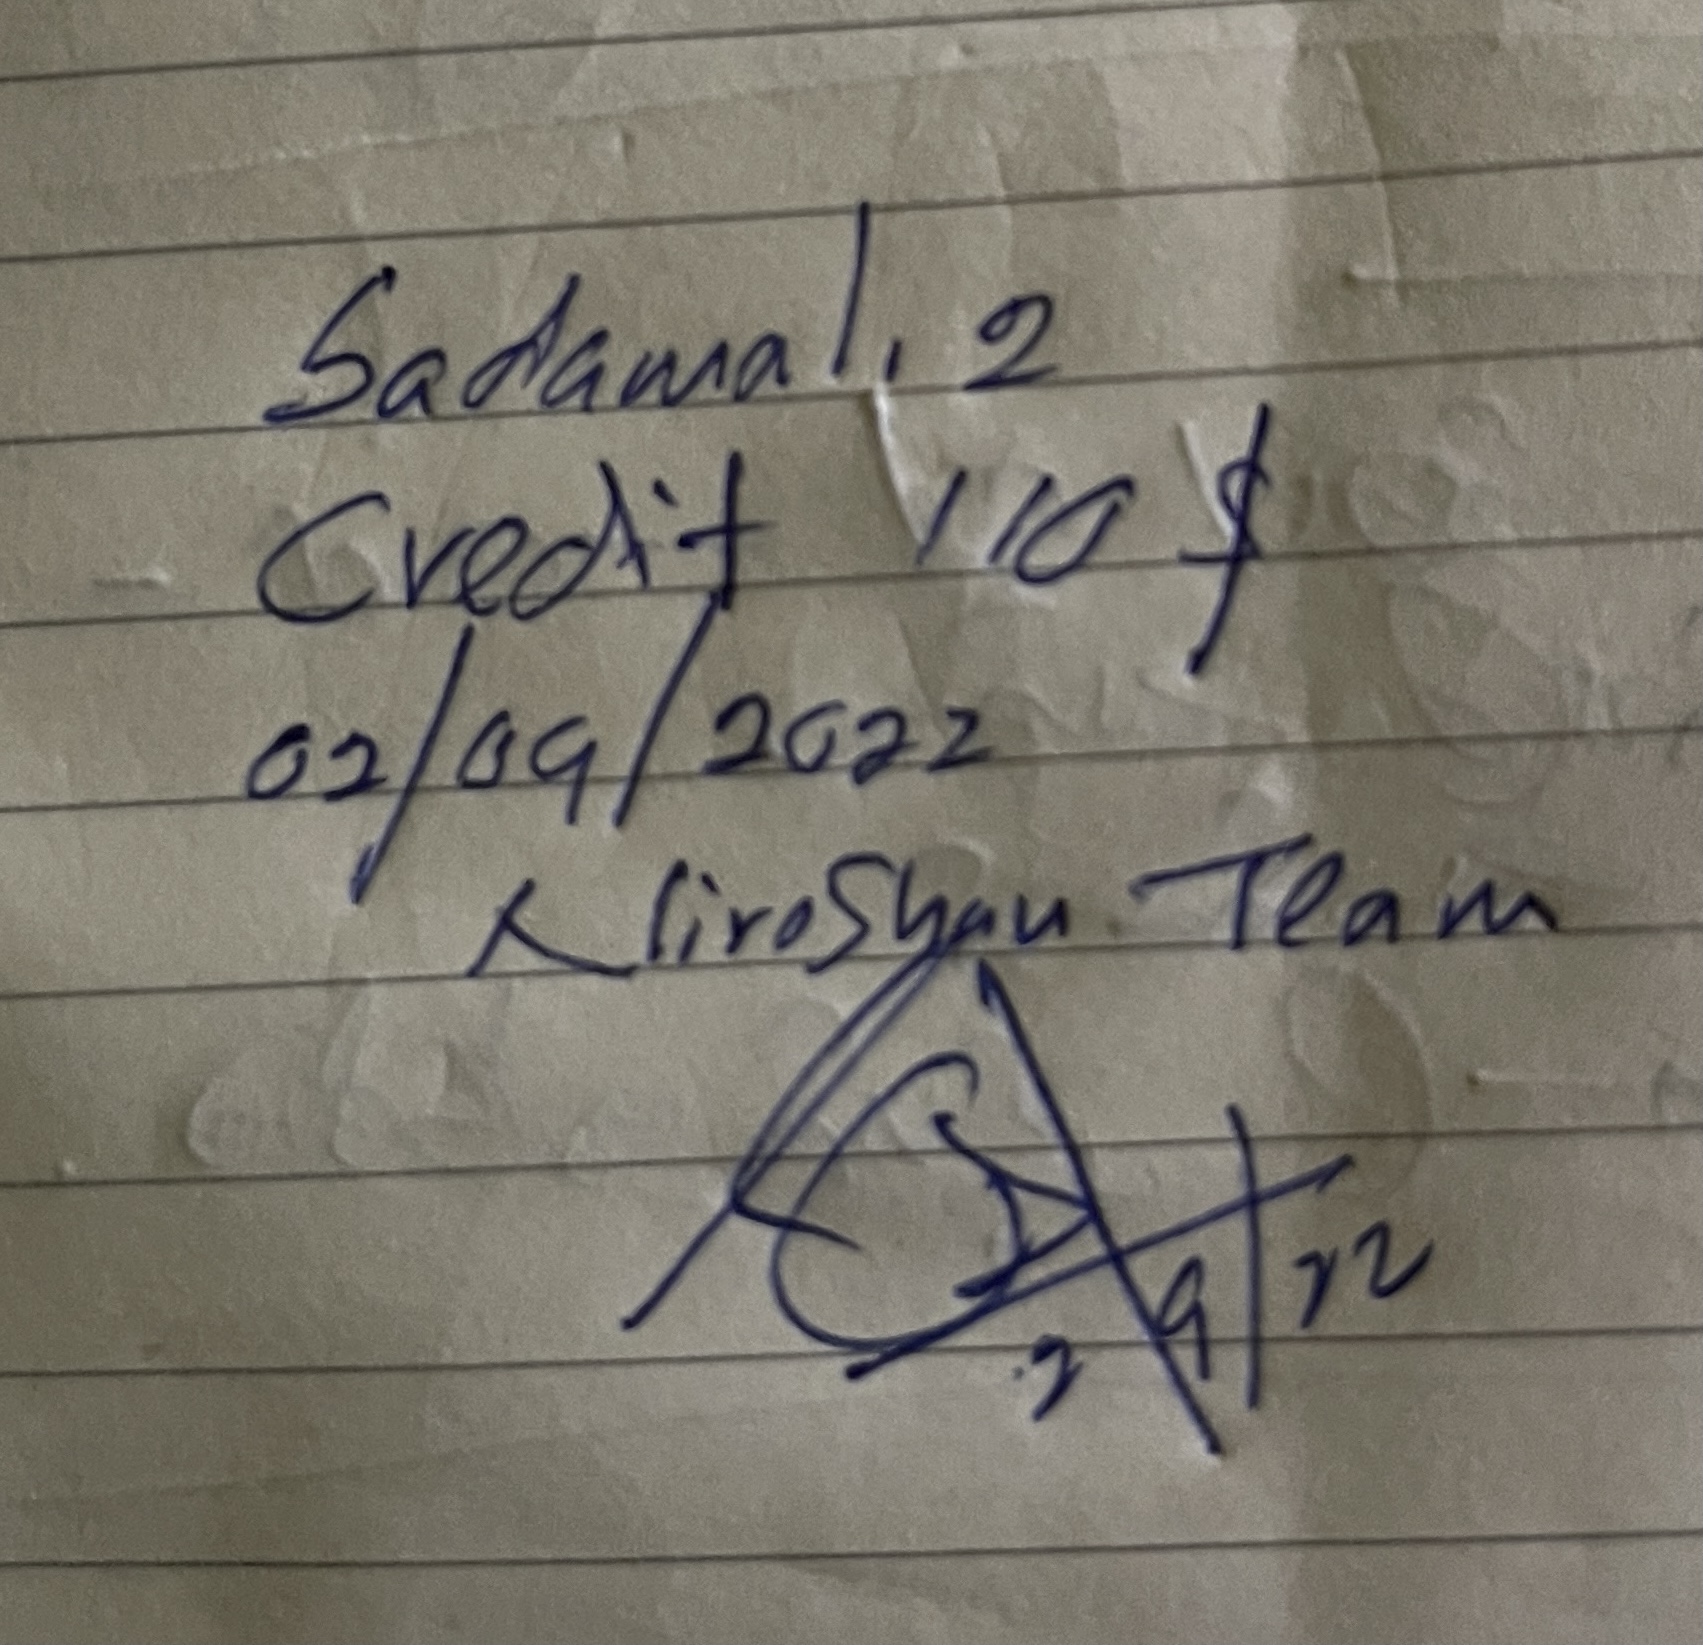 Sadamal. 2
Credit 110 $
02/09/2022
Niroshan Team
2/9/22